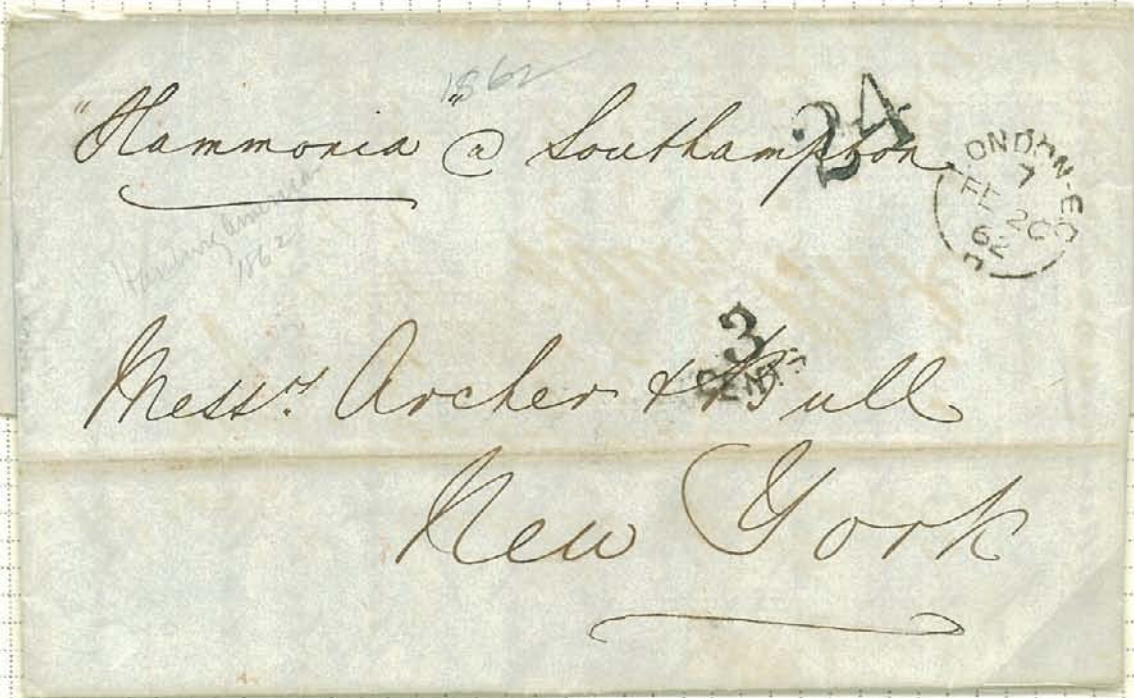 1862
"Hammonia" @ Southampton
24
LONDON-EC
7
FE 20
62
Hamburg American
1862
3
CENTS
Messrs Archer & Bull
New York